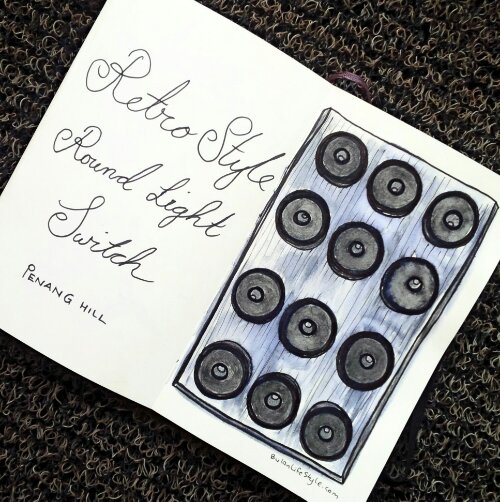 Retro Style
Round Light
Switch
PENANG HILL
BulanLifeStyle.com